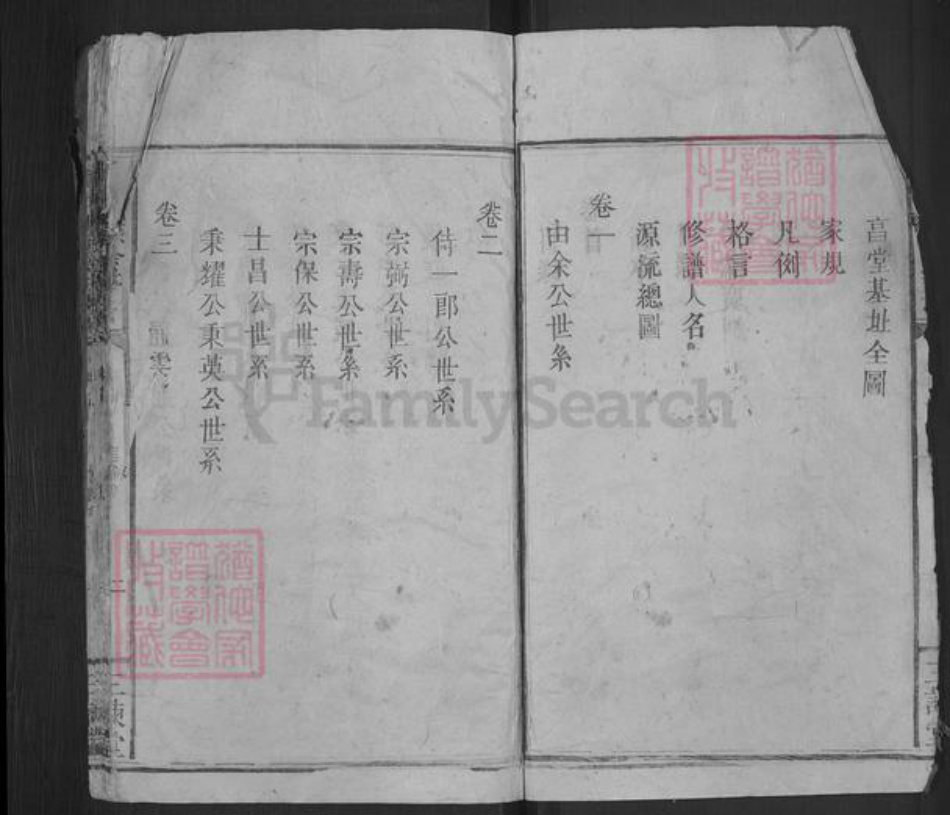 亯堂基址全圖
家規
凡例
格言
修譜人名
源流總圖
卷一
由余公世系
卷二
待一郎公世系
宗弼公世系
宗壽公世系
宗保公世系
士昌公世系
秉耀公秉英公世系
卷三
二
FamilySearch